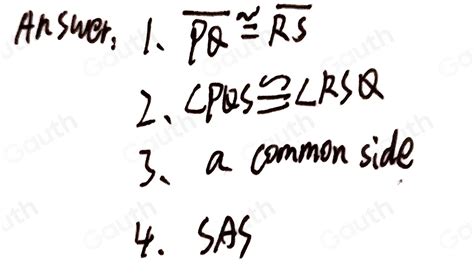 Answer: 1. PQ ≅ RS
2. ∠PQS ≅ ∠RSQ
3. a common side
4. SAS